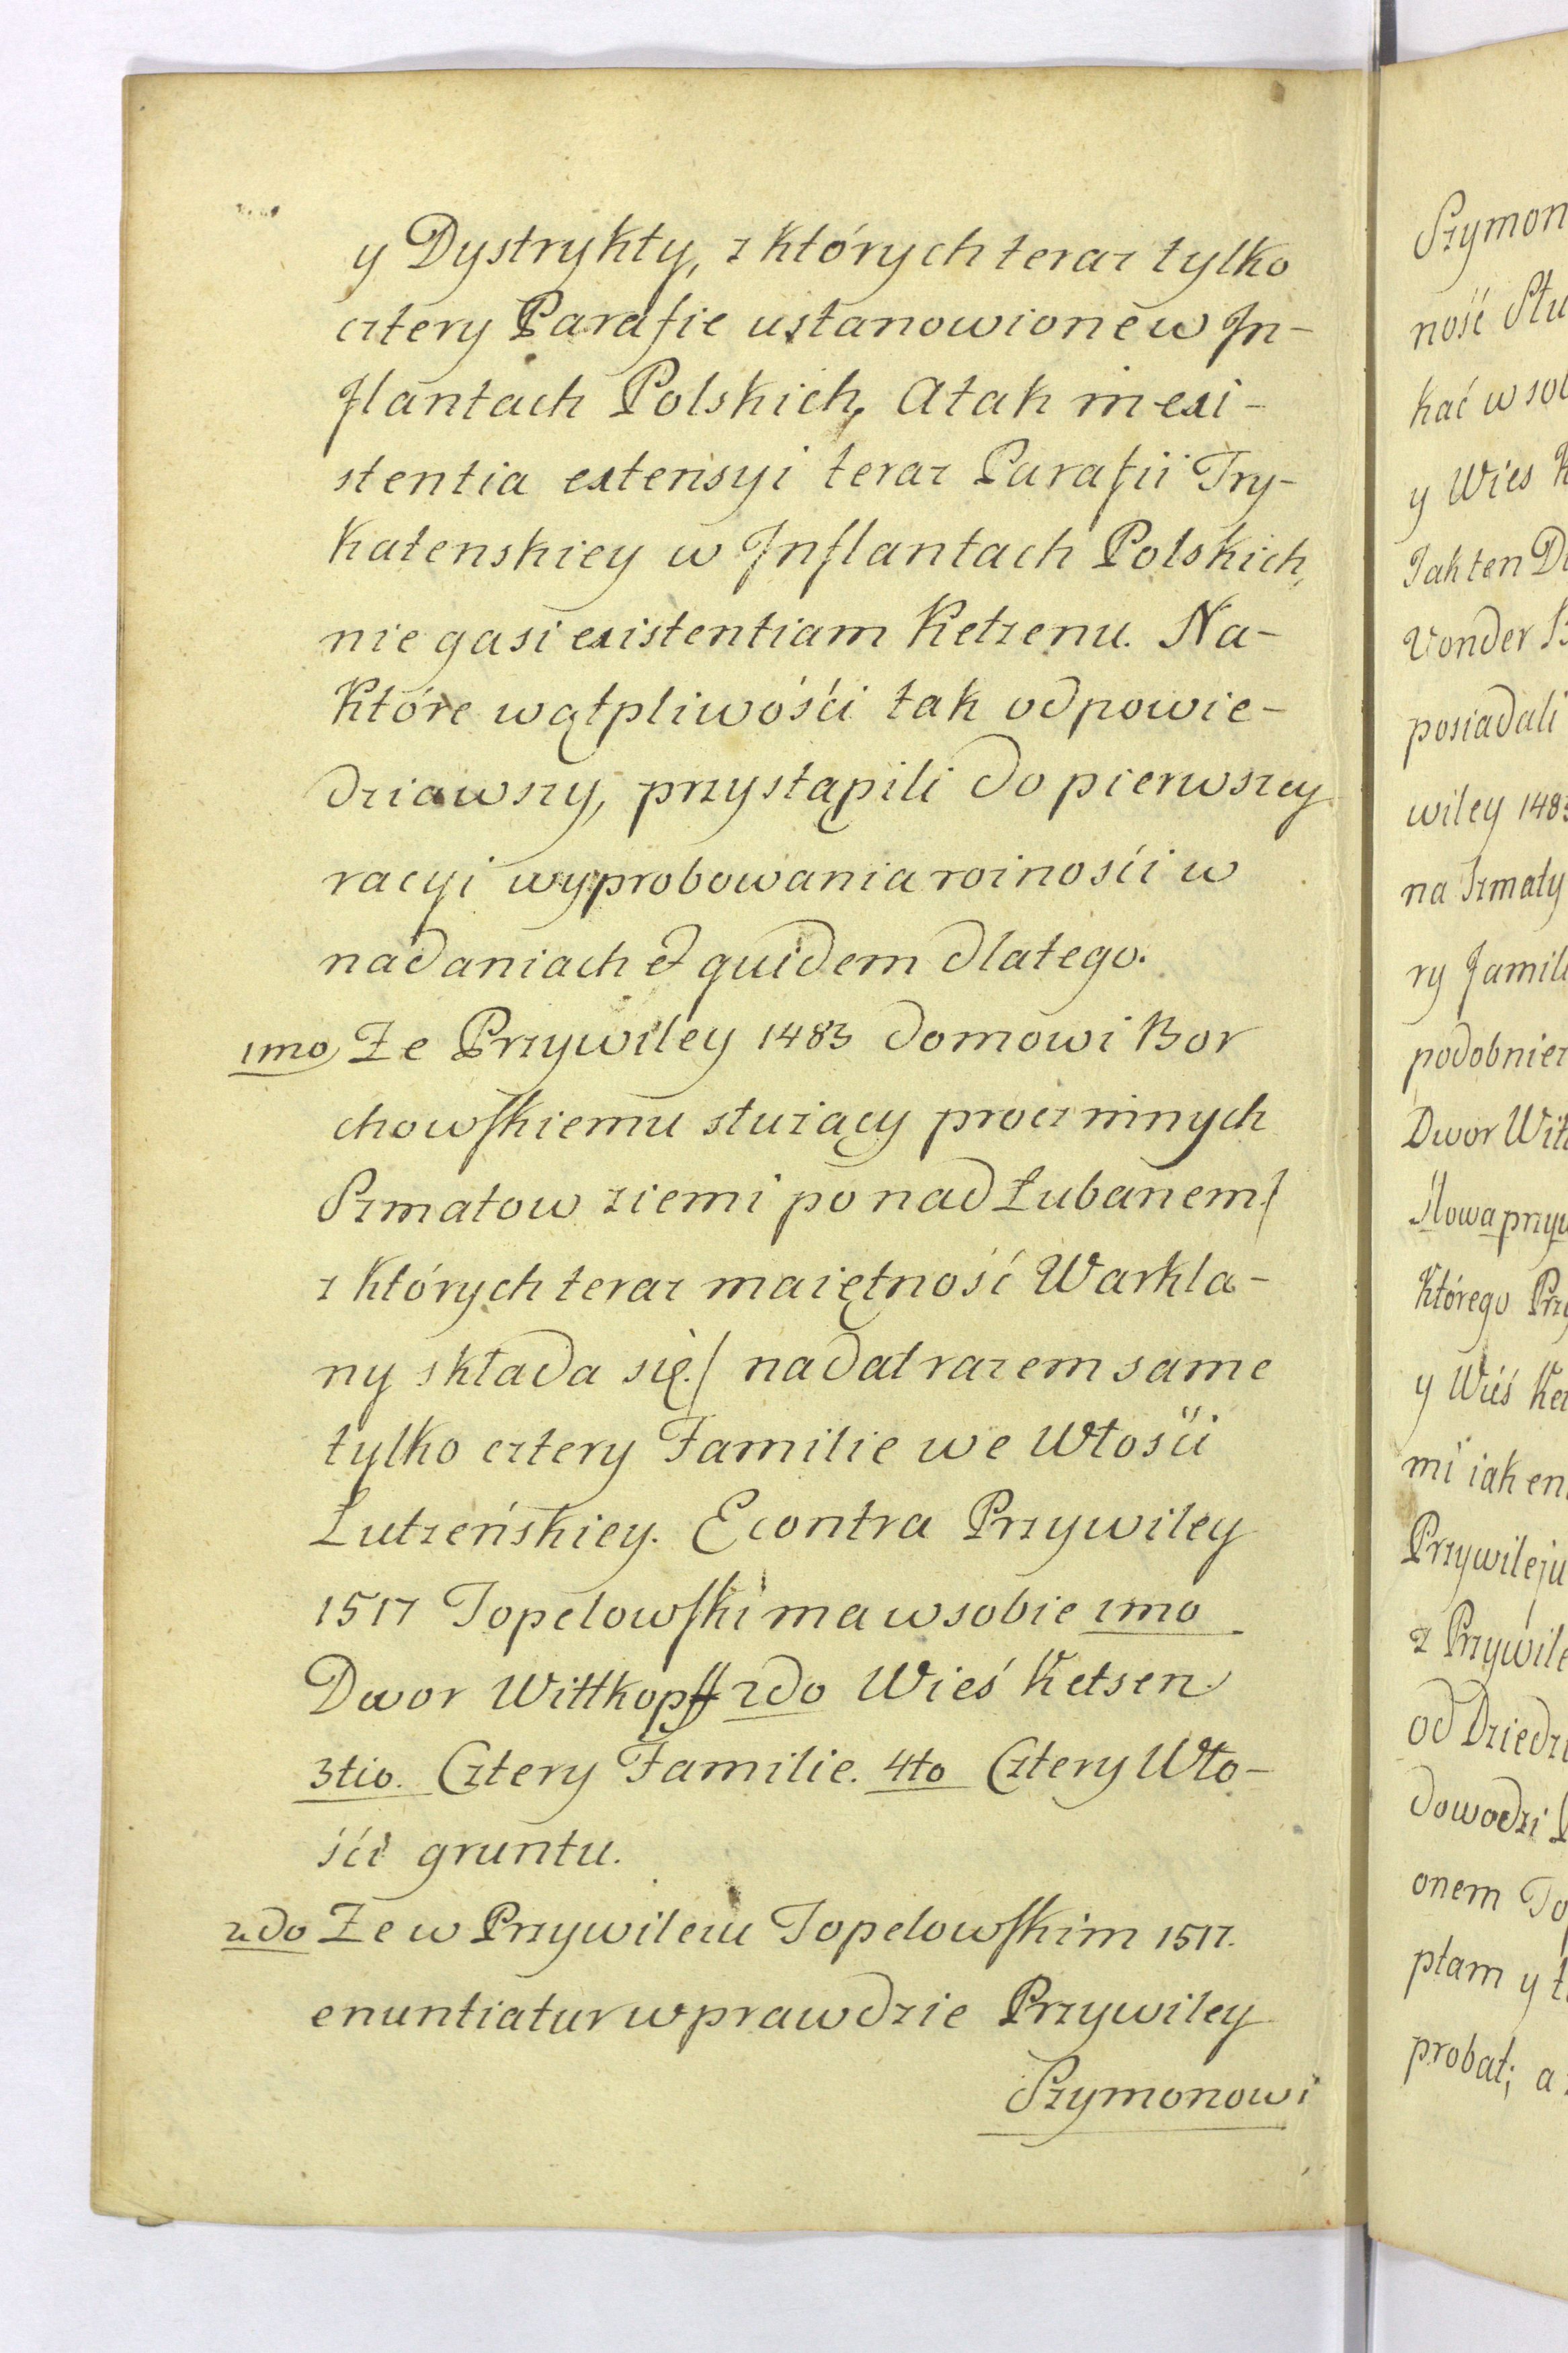 y Dystrykty, z których teraz tylko
cztery Parafie ustanowione w In-
flantach Polskich, A tak inexi-
stentia extensyi teraz Parafii Try-
katenskiey w Inflantach Polskich,
nie gasi existentiam Ketzenu. Na-
które wątpliwośći tak odpowie-
dziawszy, przystąpili do pierwszey
racyi wyprobowania roznośći w
nadaniach et quidem dlatego.
1mo Ze Przywiley 1483 domowi Bor
chowskiemu służący procz innych
Szmatow ziemi ponad Łubanem/
z których teraz maiętność Warkla-
ny składa się./ nadał razem same
tylko cztery Familie we Włośći
Lutzeńskiey. Econtra Przywiley
1517 Topelowski ma w sobie 1mo
Dwor Wittkopff 2do Wieś Ketsen.
3tio. Cztery Familie. 4to Cztery Wło-
śći gruntu.
2do Ze w Przywileiu Topelowskim 1517.
enuntiatur wprawdzie Przywiley
Szymonowi
Szymon
ność Stu
kać w sob
y Wies K
Jak ten D
Vonder B
posiadali
wiley 1483
na Szmaty
ry famili
podobniez
Dwor Wit
Słowa przyw
którego Prz
y Wieś Ket
mi iak en
Przywileju
z Przywile
od Dziedzi
dowodzi
onem To
ptam y t
probat; a